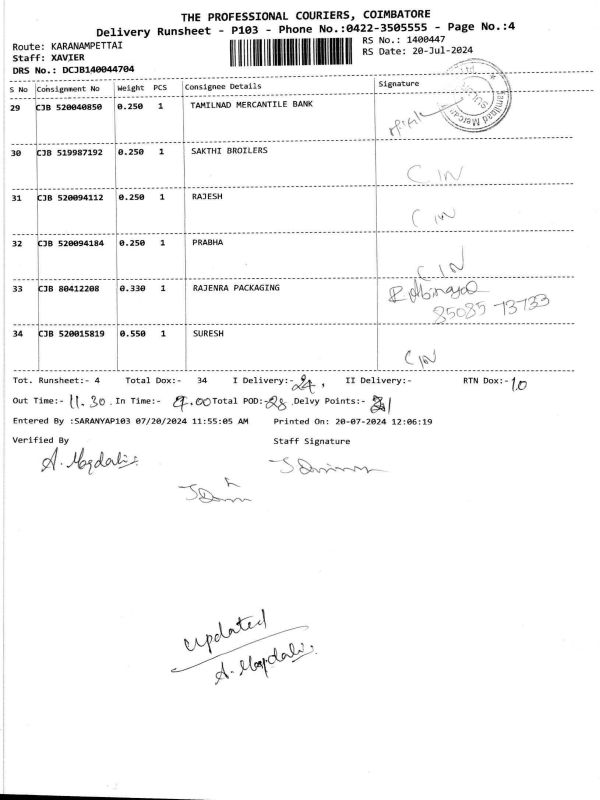 THE PROFESSIONAL COURIERS, COIMBATORE
Delivery Runsheet - P103 - Phone No.:0422-3505555 - Page No.:4
Route: KARANAMPETTAI RS No.: 1400447
Staff: XAVIER RS Date: 20-Jul-2024
DRS No.: DCJB140044704
S No Consignment No Weight PCS Consignee Details Signature
29 CJB 520040850 0.250 1 TAMILNAD MERCANTILE BANK
30 CJB 519987192 0.250 1 SAKTHI BROILERS C IN
31 CJB 520094112 0.250 1 RAJESH C IN
32 CJB 520094184 0.250 1 PRABHA C IN
33 CJB 80412208 0.330 1 RAJENRA PACKAGING
85085 73733
34 CJB 520015819 0.550 1 SURESH C IN
Tot. Runsheet:- 4 Total Dox:- 34 I Delivery:- 24, II Delivery:- RTN Dox:- 10
Out Time:- 11.30 .In Time:- .00 Total POD:- 28 .Delvy Points:-
Entered By :SARANYAP103 07/20/2024 11:55:05 AM Printed On: 20-07-2024 12:06:19
Verified By Staff Signature
A. Magdali
updated
A. Magdali